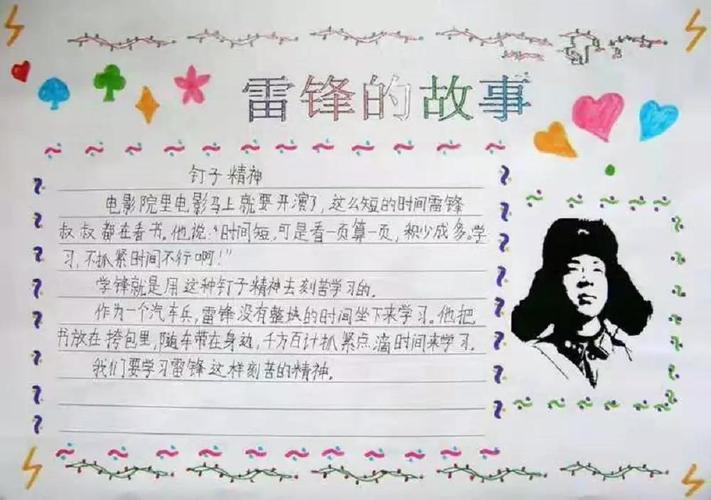 雷锋的故事
钉子精神
电影院里电影马上就要开演了,这么短的时间雷锋
叔叔都在看书。他说:“时间短,可是看一页算一页,积少成多。学
习,不抓紧时间不行啊!”
学锋就是用这种钉子精神去刻苦学习的。
作为一个汽车兵,雷锋没有整块的时间坐下来学习。他把
书放在挎包里,随车带在身边,千方百计抓紧点滴时间来学习。
我们要学习雷锋这样刻苦的精神。